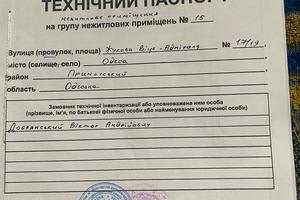 ТЕХНІЧНИЙ ПАСПОРТ
Нежитлове приміщення
на групу нежитлових приміщень № 15
Вулиця (провулок, площа) Жукова Віце-Адмірала № 17/19
місто (селище, село) Одеса
район Приморський
область Одеська
Замовник технічної інвентаризації або уповноважена ним особа
(прізвище, ім'я, по батькові фізичної особи або найменування юридичної особи)
Добрянський Віктор Андрійович